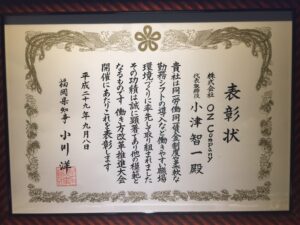 表彰状
株式会社 OZ Company
代表取締役 小津智一殿
貴社は同一労働同一賃金制度や柔軟な
勤務シフトの導入など働きやすい職場
環境づくりに率先して取り組まれました
その功績は誠に顕著であり他の模範と
なるものです 働き方改革推進大会
開催にあたりこれを表彰します
平成二十九年九月八日
福岡県知事 小川洋